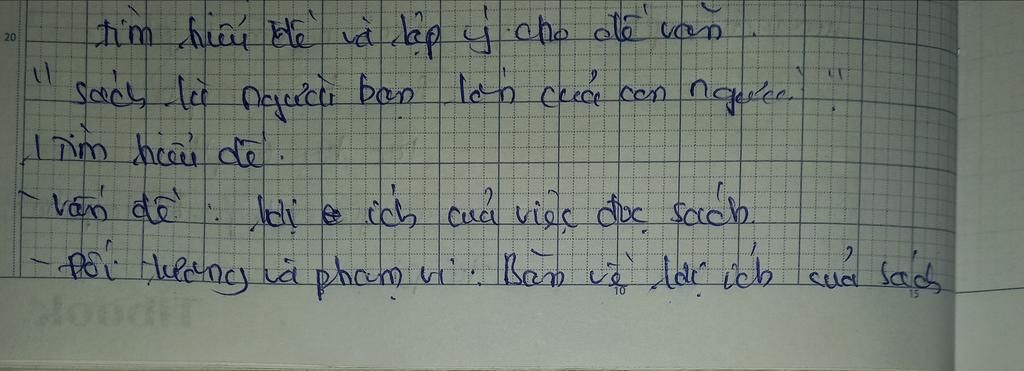 20
tìm hiểu đề và lập ý cho đề văn.
" sách là người bạn lớn của con người "
1 Tìm hiểu đề.
- vấn đề : lợi ích của việc đọc sách.
- Đối tượng và phạm vi : Bàn về lợi ích của sách
10 15